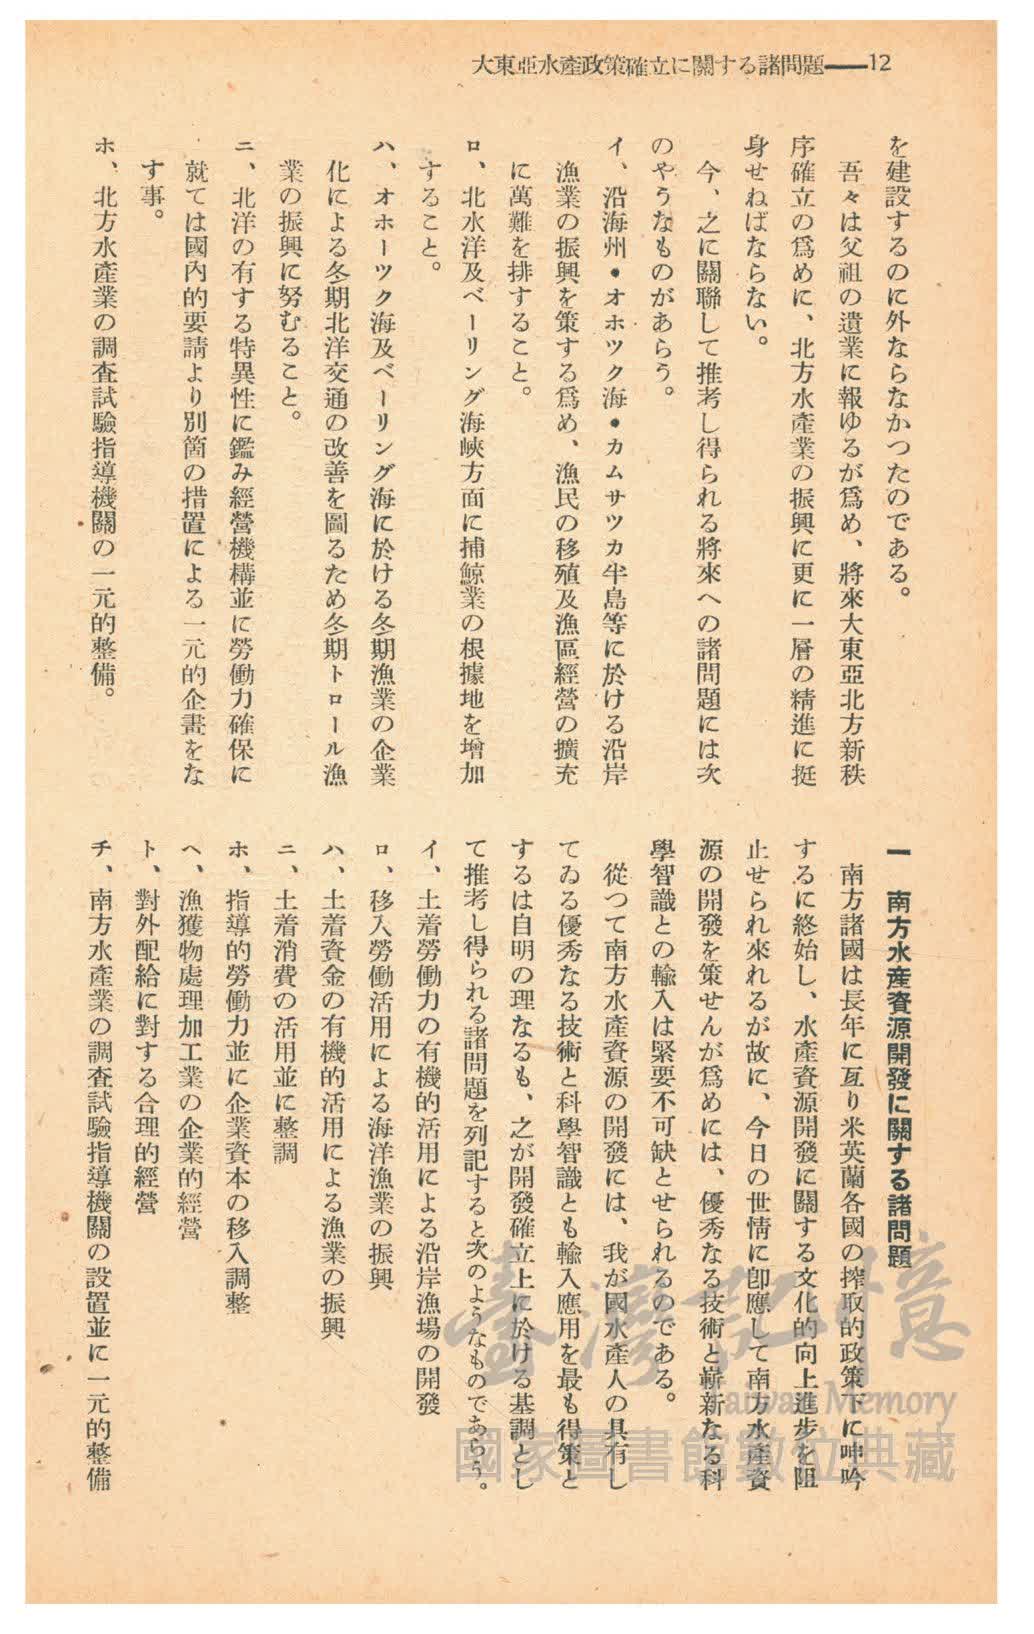 大東亞水產政策確立に關する諸問題――12
を建設するのに外ならなかつたのである。
吾々は父祖の遺業に報ゆるが爲め、將來大東亞北方新秩
序確立の爲めに、北方水產業の振興に更に一層の精進に挺
身せねばならない。
今、之に關聯して推考し得られる將來への諸問題には次
のやうなものがあらう。
イ、沿海州・オホツク海・カムサツカ半島等に於ける沿岸
漁業の振興を策する爲め、漁民の移殖及漁區經營の擴充
に萬難を排すること。
ロ、北水洋及ベーリング海峽方面に捕鯨業の根據地を增加
すること。
ハ、オホーツク海及ベーリング海に於ける冬期漁業の企業
化による冬期北洋交通の改善を圖るため冬期トロール漁
業の振興に努むること。
ニ、北洋の有する特異性に鑑み經營機構並に勞働力確保に
就ては國內的要請より別箇の措置による一元的企畫をな
す事。
ホ、北方水產業の調査試驗指導機關の一元的整備。
一 南方水產資源開發に關する諸問題
南方諸國は長年に亙り米英蘭各國の搾取的政策下に呻吟
するに終始し、水產資源開發に關する文化的向上進步を阻
止せられ來れるが故に、今日の世情に卽應して南方水產資
源の開發を策せんが爲めには、優秀なる技術と嶄新なる科
學智識との輸入は緊要不可缺とせられるのである。
從つて南方水產資源の開發には、我が國水產人の具有し
てゐる優秀なる技術と科學智識とも輸入應用を最も得策と
するは自明の理なるも、之が開發確立上に於ける基調とし
て推考し得られる諸問題を列記すると次のようなものであらう。
イ、土着勞働力の有機的活用による沿岸漁場の開發
ロ、移入勞働活用による海洋漁業の振興
ハ、土着資金の有機的活用による漁業の振興
ニ、土着消費の活用並に整調
ホ、指導的勞働力並に企業資本の移入調整
ヘ、漁獲物處理加工業の企業的經營
ト、對外配給に對する合理的經營
チ、南方水產業の調査試驗指導機關の設置並に一元的整備
臺灣記憶
Taiwan Memory
國家圖書館數位典藏